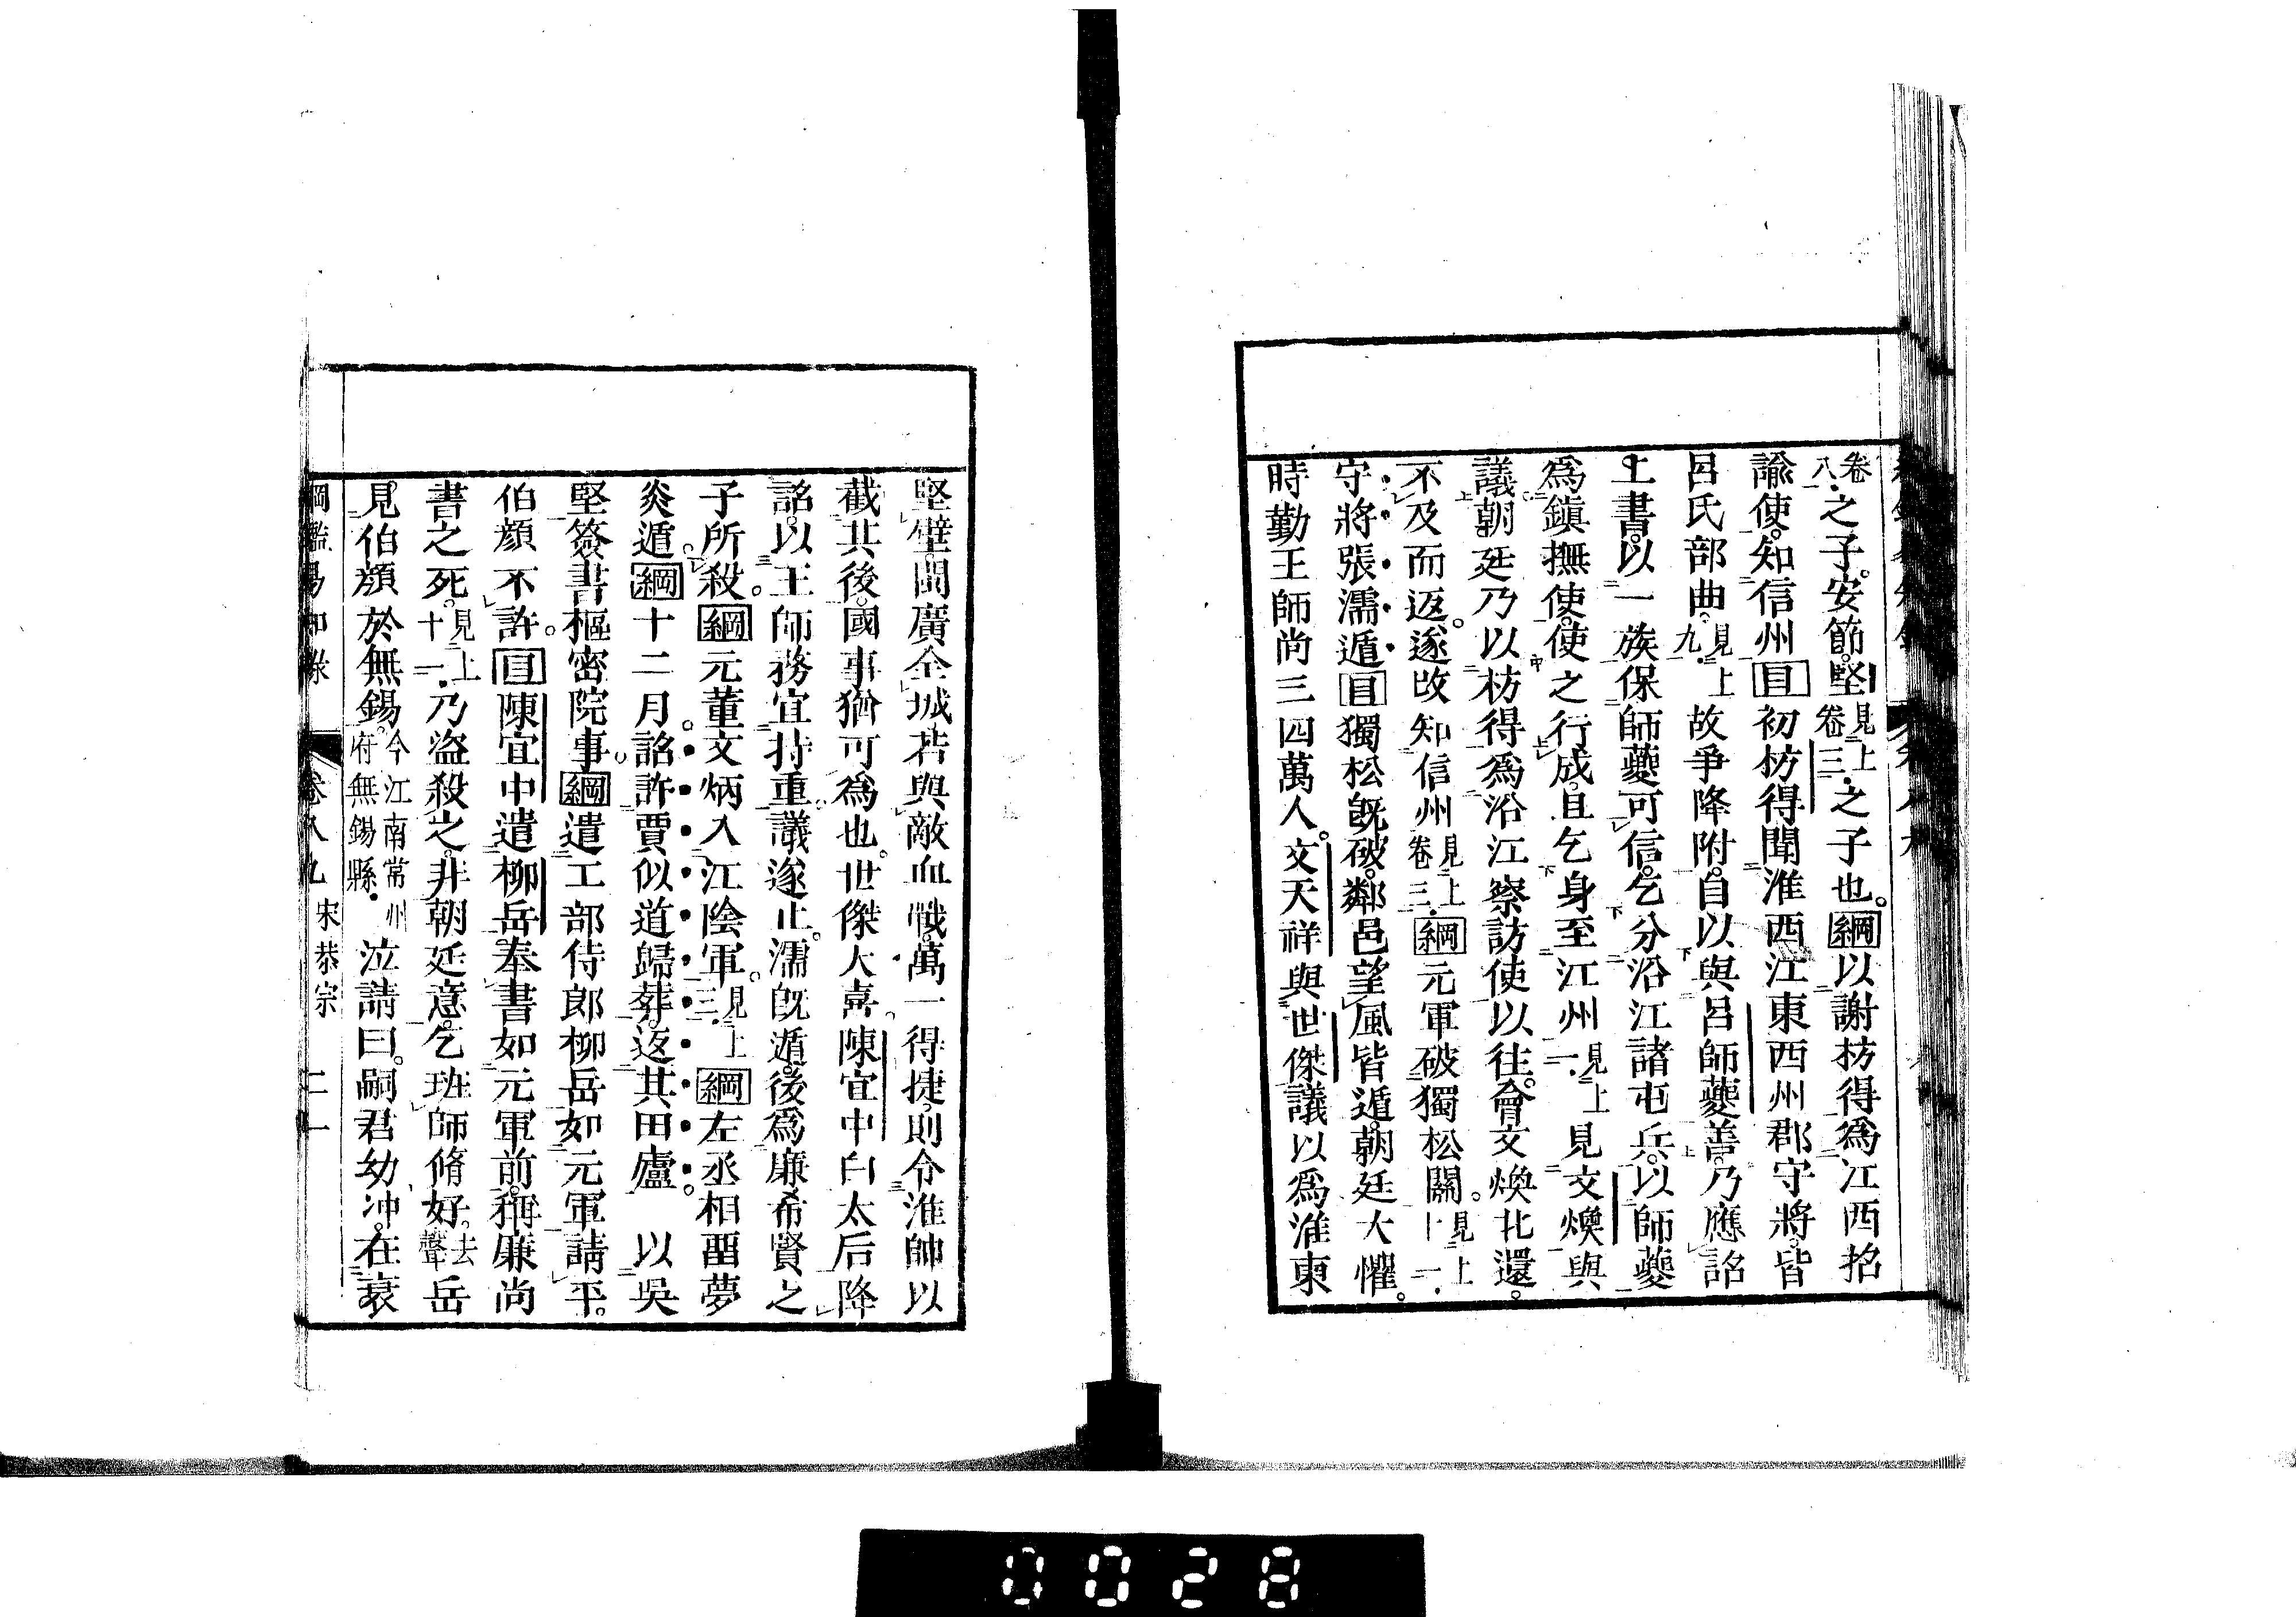 卷八之子。安節。堅見上卷三之子也。綱以謝枋得爲江西招
諭使。知信州目初枋得聞淮西江東西州郡守將。皆
呂氏部曲。見上九故爭降附。自以與呂師夔善。乃應詔
上書。以一族保師夔可信。乞分沿江諸屯兵。以師夔
爲鎭撫使。使之行成。且乞身至江州見上一見文煥與
議。朝廷乃以枋得爲沿江察訪使以往。會文煥北還。
不及而返。遂改知信州見上卷三綱元軍破獨松關。見上十一
守將張濡遁目獨松旣破。鄰邑望風皆遁。朝廷大懼。
時勤王師尚三四萬人。文天祥與世傑議以爲淮東
堅壁。閩廣全城。若與敵血戰。萬一得捷。則令淮帥以
截其後。國事猶可爲也。世傑大喜陳宜中白太后降
詔。以王師務宜持重。議遂止。濡旣遁。後爲廉希賢之
子所殺。綱元董文炳入江陰軍。見上三綱左丞相畱夢
炎遁綱十二月。詔許賈似道歸葬。返其田廬。以吳
堅簽書樞密院事。綱遣工部侍郎柳岳如元軍請平。
伯顏不許。目陳宜中遣柳岳。奉書如元軍前。稱廉尚
書之死。見上十一乃盜殺之。非朝廷意。乞班師脩好。去聲岳
見伯顏於無錫。今江南常州府無錫縣泣請曰。嗣君幼冲。在衰
綱鑑易知錄 卷八九 宋恭宗 二一
0028